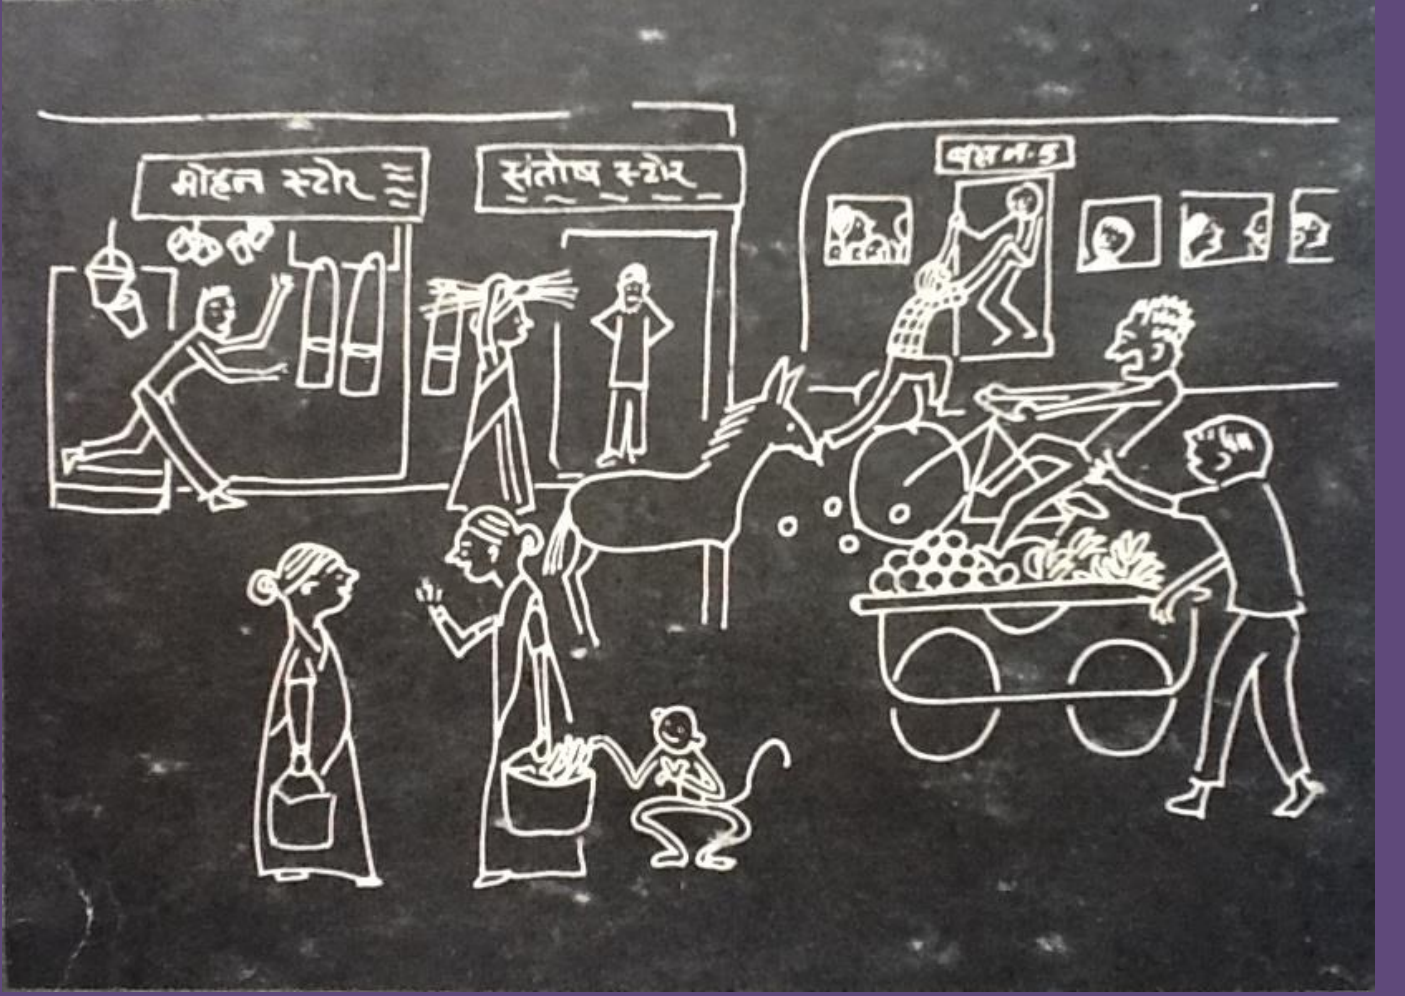 मोहन स्टोर
संतोष स्टोर
बस नं. 5